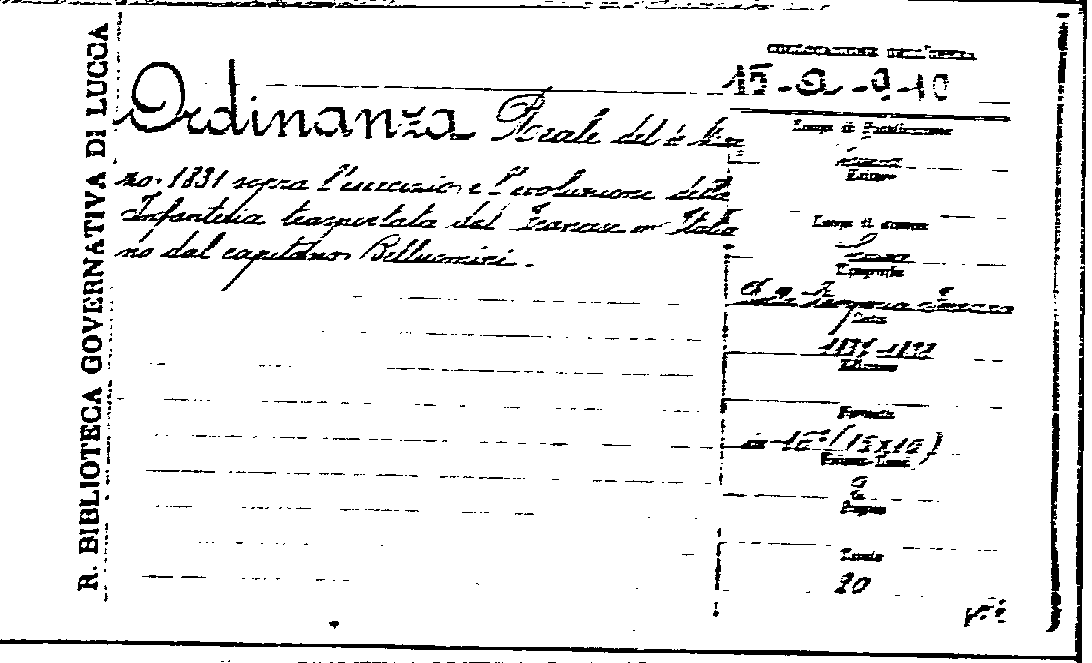 R. BIBLIOTECA GOVERNATIVA DI LUCCA
Ordinanza Reale del 4 Mar
zo 1831 sopra l'esercizio e l'evoluzione della
Infanteria trasportata dal Francese in Italia
no dal capitano Belluomini.
Luogo di Pubblicazione
Lucca
Editore
Luogo di stampa
Lucca
Tipografia
Data
1831-1832
Edizione
Formato
in-16° (15x10)
Volumi-Tomi
2
Pagine
Tavole
20